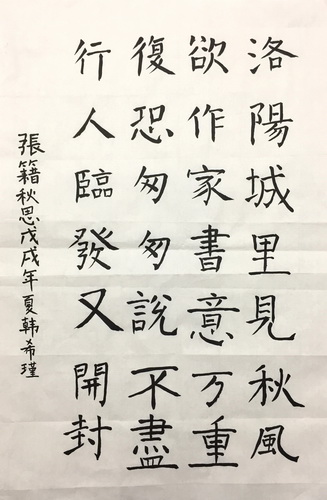 洛陽城里見秋風
欲作家書意万重
復恐匆匆說不盡
行人臨發又開封
張籍秋思戊戌年夏韩希瑾